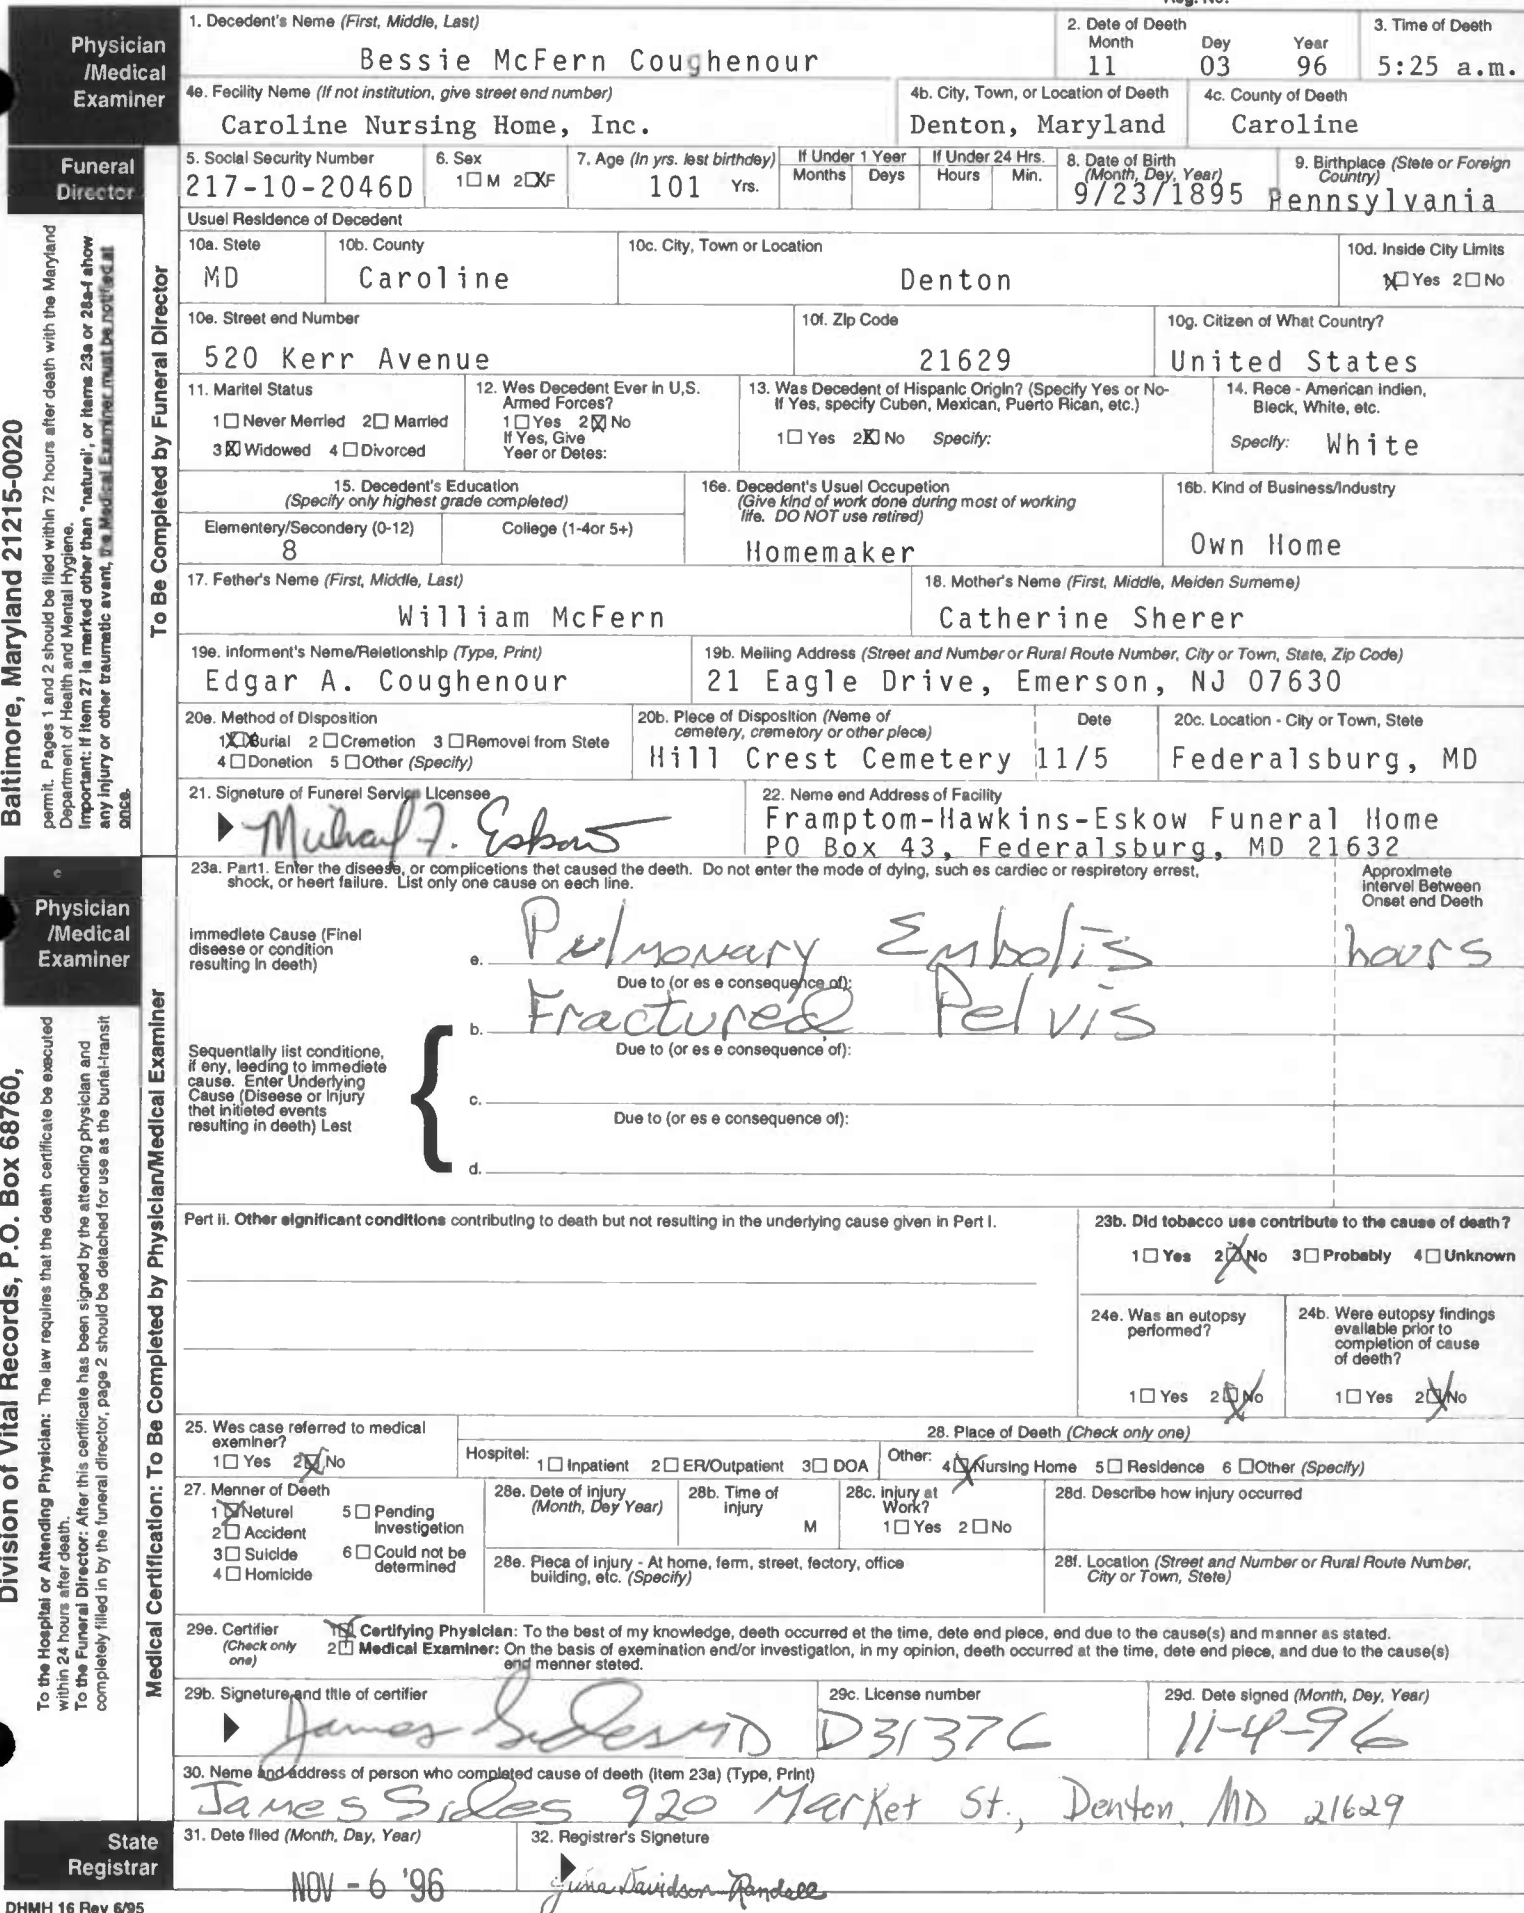 Physician
/Medical
Examiner
1. Decedent's Name (First, Middle, Last)
Bessie McFern Coughenour
2. Date of Death
Month Day Year
11 03 96
3. Time of Death
5:25 a.m.
4a. Facility Name (If not institution, give street and number)
Caroline Nursing Home, Inc.
4b. City, Town, or Location of Death
Denton, Maryland
4c. County of Death
Caroline
Funeral
Director
5. Social Security Number
217-10-2046D
6. Sex
1☐ M 2☒F
7. Age (In yrs. last birthday)
101 Yrs.
If Under 1 Year
Months Days
If Under 24 Hrs.
Hours Min.
8. Date of Birth
(Month, Day, Year)
9/23/1895
9. Birthplace (State or Foreign
Country)
Pennsylvania
Usual Residence of Decedent
10a. State
MD
10b. County
Caroline
10c. City, Town or Location
Denton
10d. Inside City Limits
1☒ Yes 2☐ No
10e. Street and Number
520 Kerr Avenue
10f. Zip Code
21629
10g. Citizen of What Country?
United States
11. Marital Status
1☐ Never Married 2☐ Married
3☒ Widowed 4☐ Divorced
12. Was Decedent Ever in U.S.
Armed Forces?
1☐ Yes 2☒ No
If Yes, Give
Year or Dates:
13. Was Decedent of Hispanic Origin? (Specify Yes or No-
If Yes, specify Cuban, Mexican, Puerto Rican, etc.)
1☐ Yes 2☒ No Specify:
14. Race - American Indian,
Black, White, etc.
Specify: White
15. Decedent's Education
(Specify only highest grade completed)
Elementary/Secondary (0-12) College (1-4or 5+)
8
16a. Decedent's Usual Occupation
(Give kind of work done during most of working
life. DO NOT use retired)
Homemaker
16b. Kind of Business/Industry
Own Home
17. Father's Name (First, Middle, Last)
William McFern
18. Mother's Name (First, Middle, Maiden Surname)
Catherine Sherer
19a. Informant's Name/Relationship (Type, Print)
Edgar A. Coughenour
19b. Mailing Address (Street and Number or Rural Route Number, City or Town, State, Zip Code)
21 Eagle Drive, Emerson, NJ 07630
20a. Method of Disposition
1☒ Burial 2☐ Cremation 3☐ Removal from State
4☐ Donation 5☐ Other (Specify)
20b. Place of Disposition (Name of
cemetery, crematory or other place)
Hill Crest Cemetery
Date
11/5
20c. Location - City or Town, State
Federalsburg, MD
21. Signature of Funeral Service Licensee
22. Name and Address of Facility
Framptom-Hawkins-Eskow Funeral Home
PO Box 43, Federalsburg, MD 21632
To Be Completed by Funeral Director
Baltimore, Maryland 21215-0020
permit. Pages 1 and 2 should be filed within 72 hours after death with the Maryland
Department of Health and Mental Hygiene.
Important: If item 27 is marked other than "natural', or items 23a or 28a-f show
any injury or other traumatic event, the Medical Examiner must be notified at
once.
Physician
/Medical
Examiner
23a. Part1. Enter the disease, or complications that caused the death. Do not enter the mode of dying, such as cardiac or respiratory arrest,
shock, or heart failure. List only one cause on each line.
Approximate
Interval Between
Onset and Death
Immediate Cause (Final
disease or condition
resulting in death)
a. Pulmonary Embolis hours
Due to (or as a consequence of):
b. Fractured Pelvis
Due to (or as a consequence of):
Sequentially list conditions,
if any, leading to immediate
cause. Enter Underlying
Cause (Disease or Injury
that initiated events
resulting in death) Last
c.
Due to (or as a consequence of):
d.
Part II. Other significant conditions contributing to death but not resulting in the underlying cause given in Part I.
23b. Did tobacco use contribute to the cause of death?
1☐ Yes 2☒ No 3☐ Probably 4☐ Unknown
24a. Was an autopsy
performed?
1☐ Yes 2☒ No
24b. Were autopsy findings
available prior to
completion of cause
of death?
1☐ Yes 2☒ No
25. Was case referred to medical
examiner?
1☐ Yes 2☒ No
28. Place of Death (Check only one)
Hospital: 1☐ Inpatient 2☐ ER/Outpatient 3☐ DOA Other: 4☒ Nursing Home 5☐ Residence 6☐ Other (Specify)
27. Manner of Death
1☒ Natural 5☐ Pending
Investigation
2☐ Accident
3☐ Suicide 6☐ Could not be
determined
4☐ Homicide
28a. Date of Injury
(Month, Day Year)
28b. Time of
Injury
M
28c. Injury at
Work?
1☐ Yes 2☐ No
28d. Describe how injury occurred
28e. Place of injury - At home, farm, street, factory, office
building, etc. (Specify)
28f. Location (Street and Number or Rural Route Number,
City or Town, State)
29a. Certifier
(Check only
one)
1☒ Certifying Physician: To the best of my knowledge, death occurred at the time, date and place, and due to the cause(s) and manner as stated.
2☐ Medical Examiner: On the basis of examination and/or investigation, in my opinion, death occurred at the time, date and place, and due to the cause(s)
and manner stated.
29b. Signature and title of certifier
James Sides MD
29c. License number
D31376
29d. Date signed (Month, Day, Year)
11-4-96
30. Name and address of person who completed cause of death (Item 23a) (Type, Print)
James Sides 920 Market St., Denton, MD 21629
Medical Certification: To Be Completed by Physician/Medical Examiner
Division of Vital Records, P.O. Box 68760,
To the Hospital or Attending Physician: The law requires that the death certificate be executed
within 24 hours after death.
To the Funeral Director: After this certificate has been signed by the attending physician and
completely filled in by the funeral director, page 2 should be detached for use as the burial-transit
State
Registrar
31. Date filed (Month, Day, Year)
NOV - 6 '96
32. Registrar's Signature
Davidson-Randall
DHMH 16 Rev 6/95